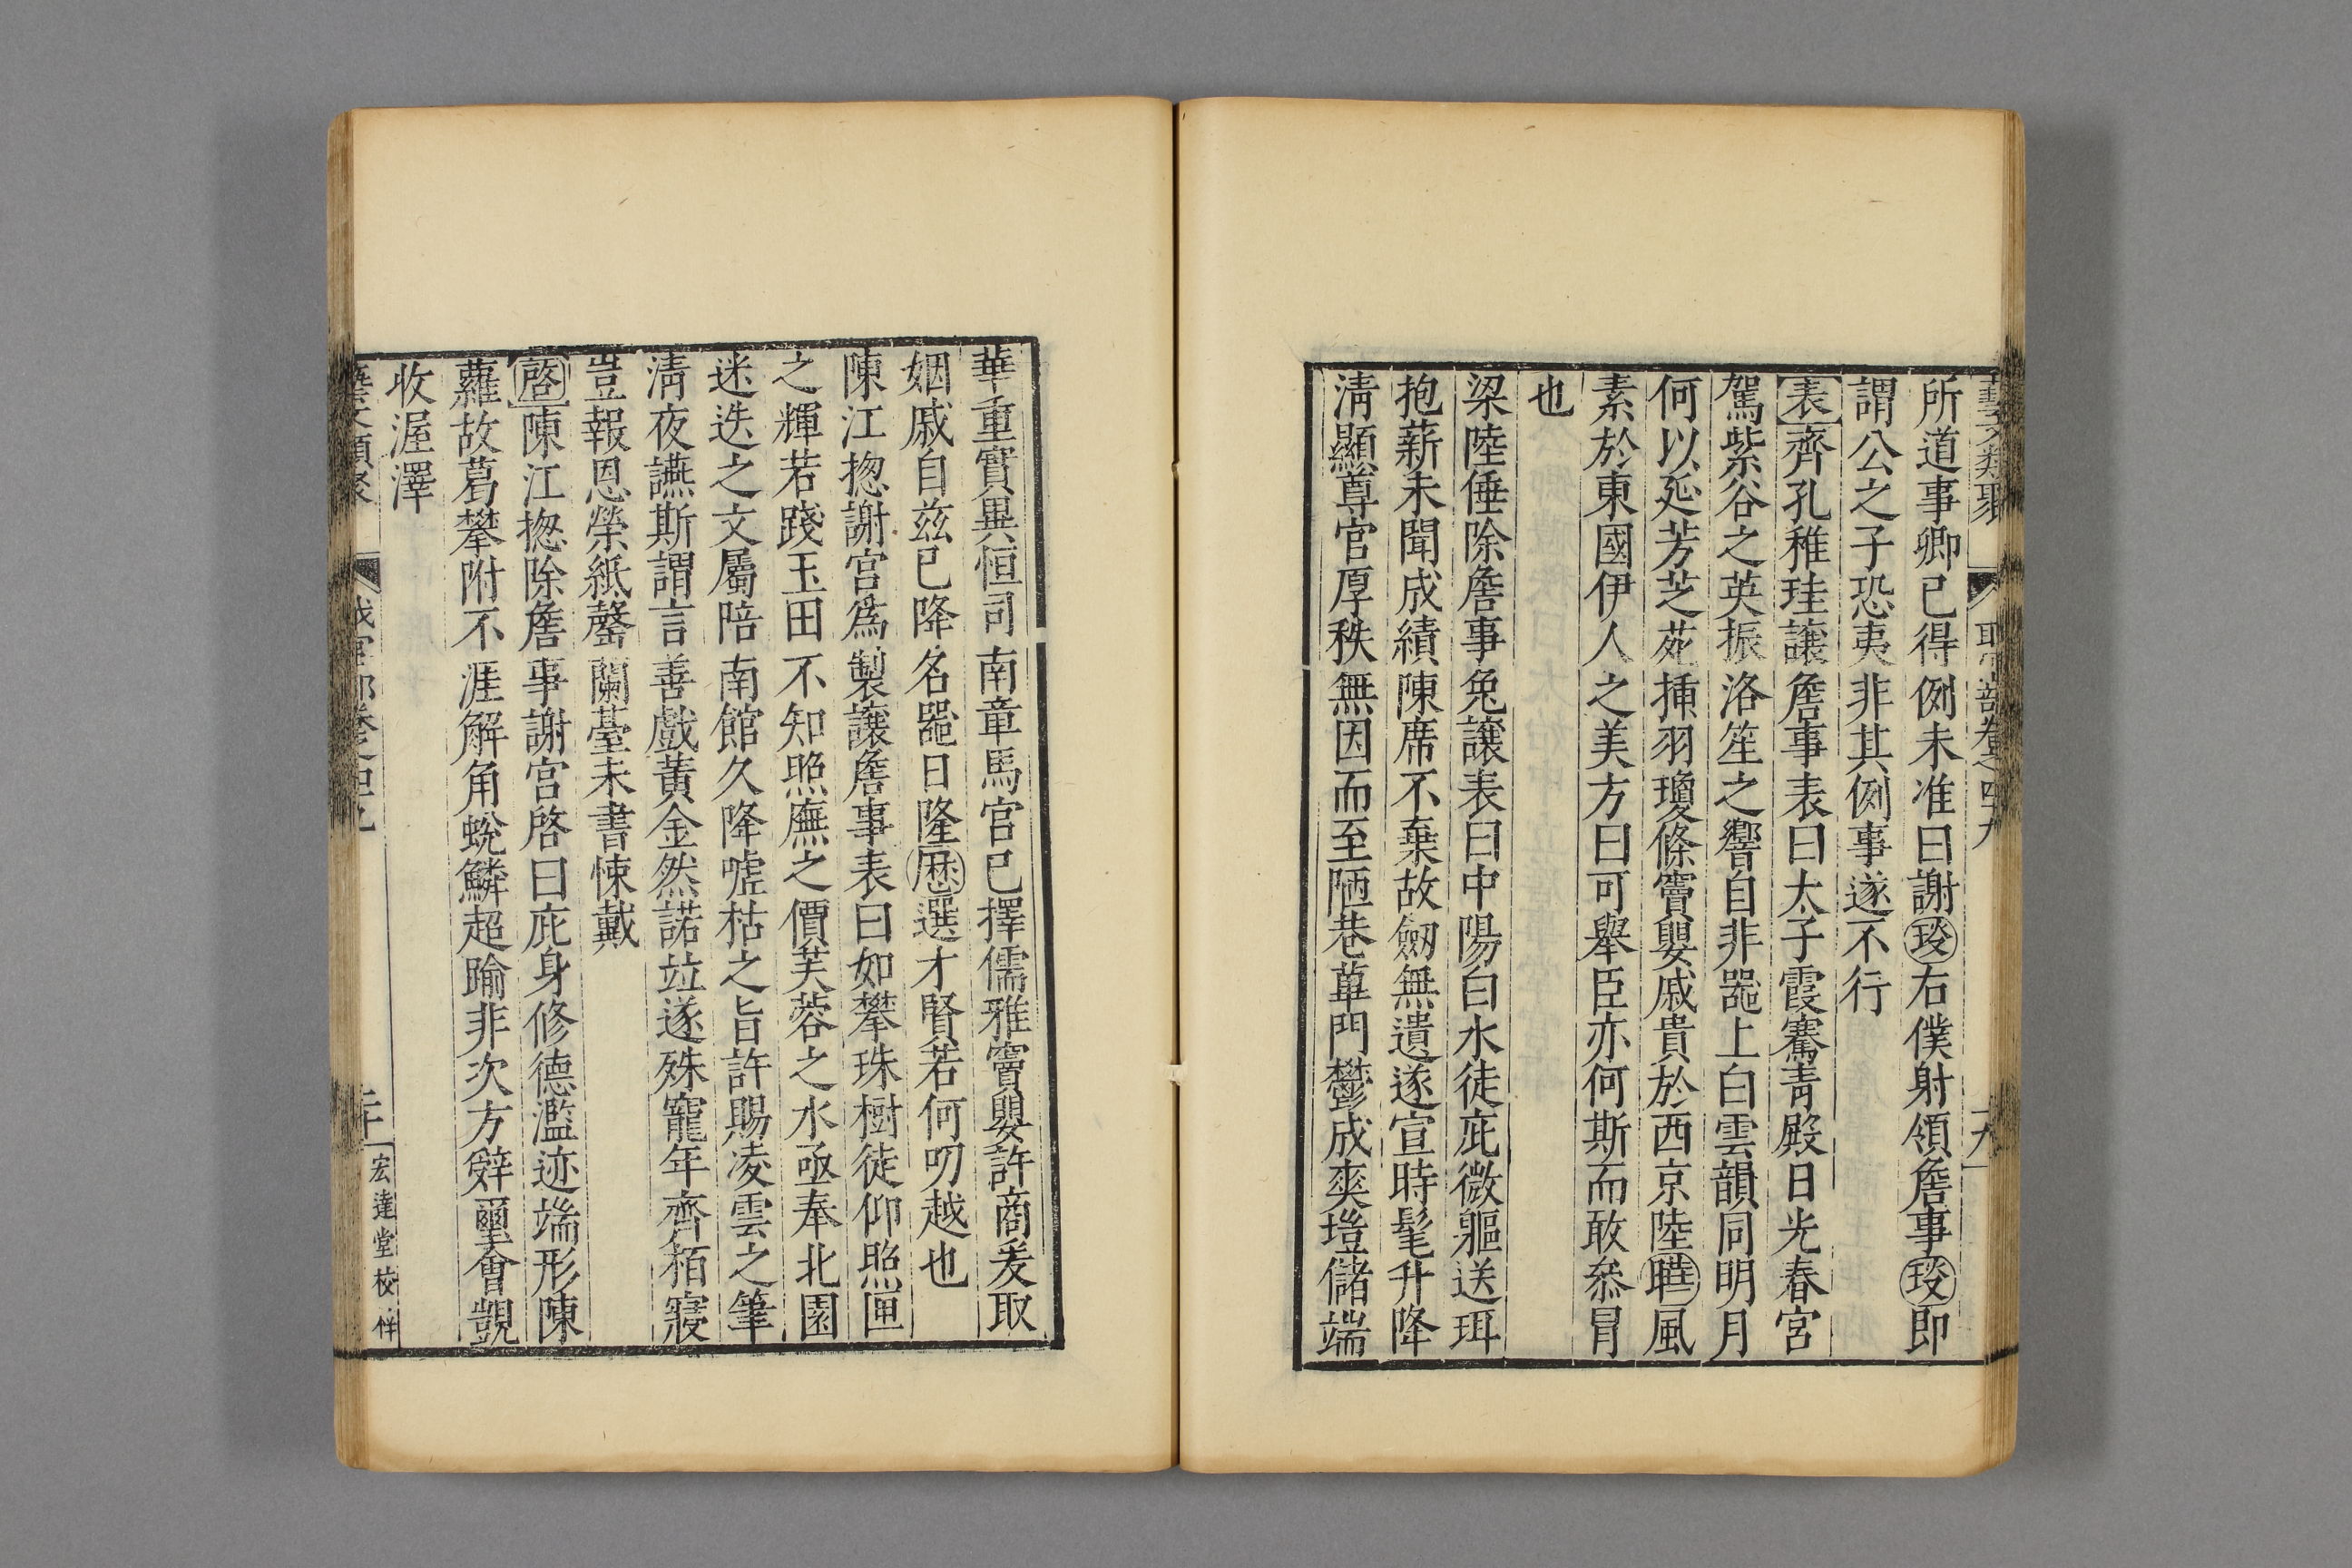 藝文類聚 職官部卷之四十九 十九
所道事卿已得例未准曰謝琰右僕射領詹事琰即
謂公之子恐夷非其例事遂不行
表齊孔稚珪讓詹事表曰太子霞騫青殿日光春宮
駕紫谷之英振洛笙之響自非器上白雲韻同明月
何以延芳芝苑揷羽瓊條竇嬰戚貴於西京陸曄風
素於東國伊人之美方曰可舉臣亦何斯而敢叅冐
也
梁陸倕除詹事兔讓表曰中陽白水徒庇微軀送珥
抱薪未聞成績陳席不棄故劒無遺遂宣時髦升降
淸顯尊官厚秩無因而至陋巷蓽門鬱成爽塏儲端
華重實異恒司南章馬宫已擇儒雅竇嬰許商爰取
姻戚自兹已降名器日隆歷選才賢若何叨越也
陳江揔謝宫爲製讓詹事表曰如攀珠樹徒仰照匣
之輝若踐玉田不知照廡之價芙蓉之水亟奉北園
迷迭之文屬陪南館久降噓枯之旨許賜凌雲之筆
淸夜讌斯謂言善戲黃金然諾竝遂殊寵年齊栢寢
豈報恩榮紙罄蘭臺未書悚戴
啓陳江揔除詹事謝宫啓曰庇身修德濫迹端形陳
蘿故葛攀附不涯解角蛻鱗超踰非次方辤璽會覬
收渥澤
藝文類聚 職官部卷之四九 二十 宏達堂校栞